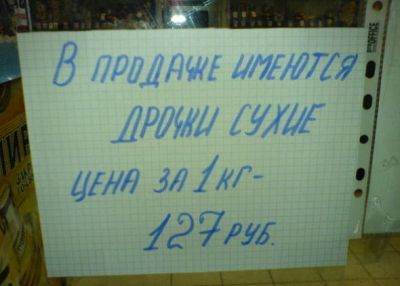 В ПРОДАЖЕ ИМЕЮТСЯ
ДРОЧКИ СУХИЕ
ЦЕНА ЗА 1 КГ-
127 РУБ.
OFFICE